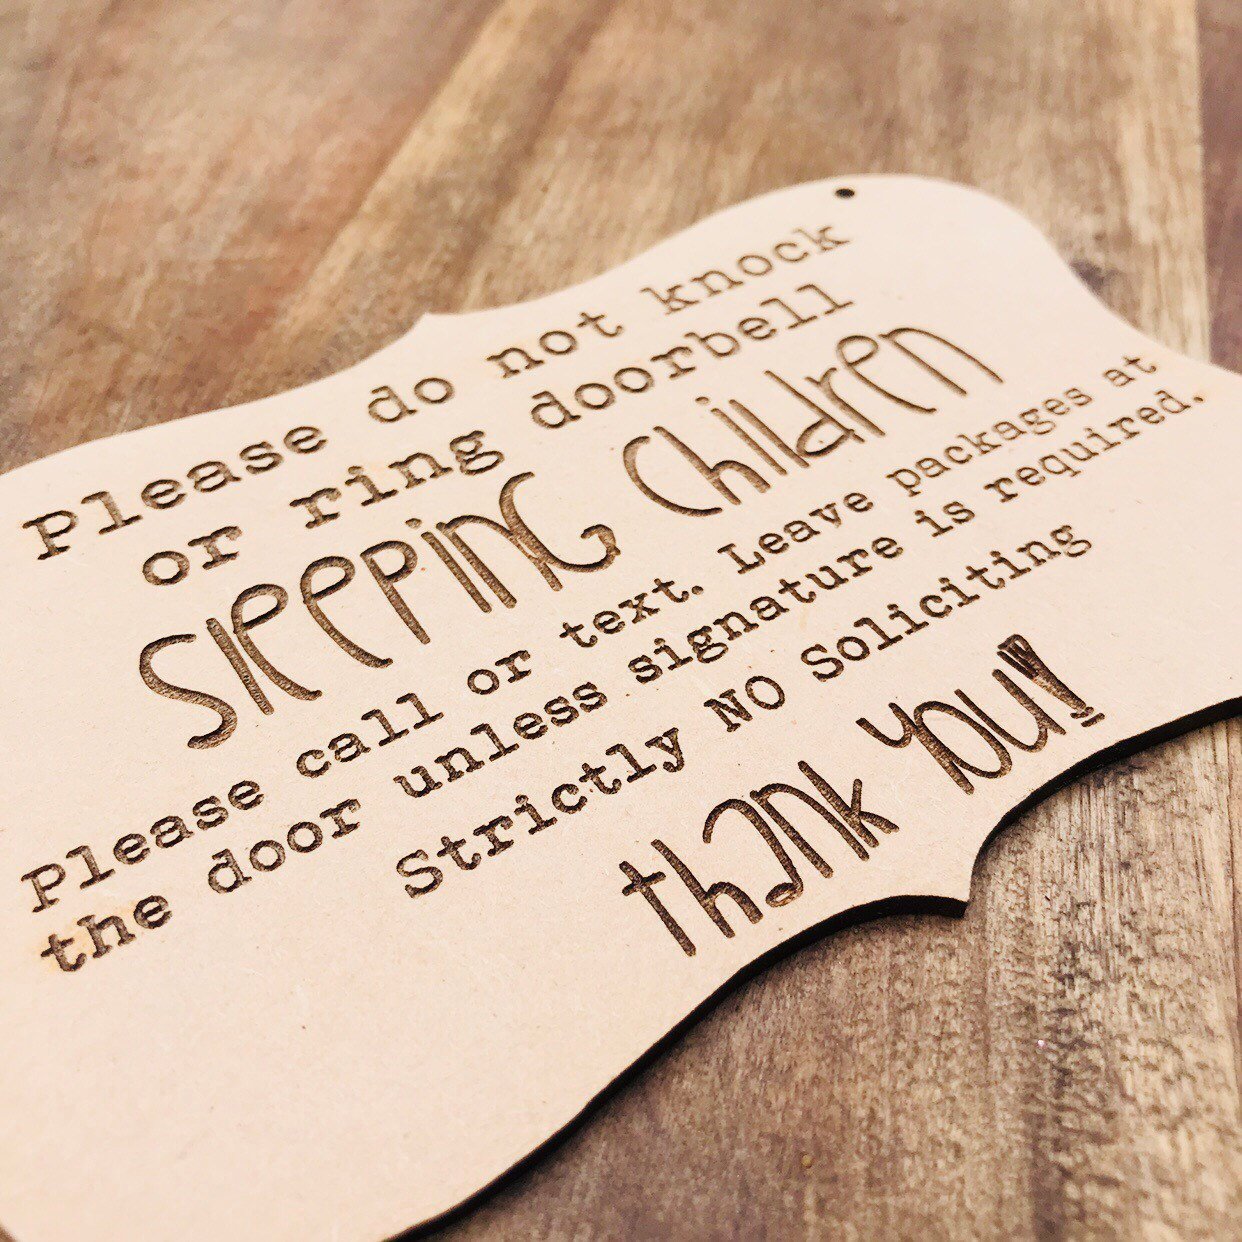 Please do not knock
or ring doorbell
SleepinG Children
Please call or text. Leave packages at
the door unless signature is required.
Strictly NO Soliciting
thank you!